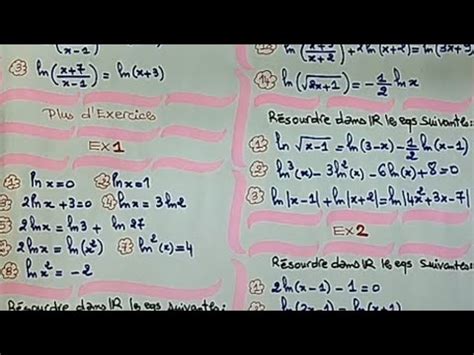 (x-1)
③ ln((x+7)/(x-1)) = ln(x+3)
Plus d'Exercices
EX1
① ln x = 0 ② ln x = 1
③ 2ln x + 3 = 0 ④ ln x = 3 ln 2
⑤ 2ln x = ln 3 + ln 27
⑥ 2ln x = ln(x²) ⑦ ln²(x) = 4
⑧ ln x² = -2
Résoudre dans IR les eqs
ln(√(2x+1)) = -1/2 ln x
Résoudre dans IR les eqs suivantes:
① ln √(x-1) = ln(3-x) - 1/2 ln(x-1)
② ln³(x) - 3ln²(x) - 6 ln(x) + 8 = 0
③ ln|x-1| + ln|x+2| = ln|4x²+3x-7|
EX2
Résoudre dans IR les eqs suivantes:
① 2ln(x-1) - 1 = 0
ln(x+1)